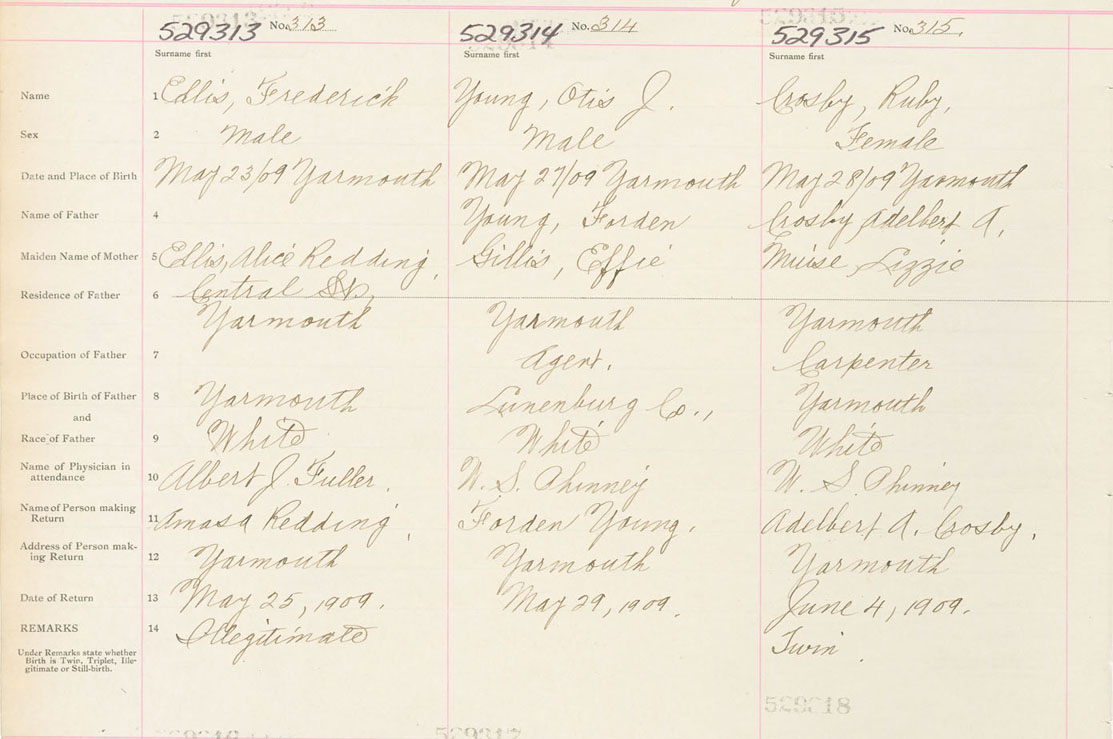 529313 No. 313
529314 No. 314
529315 No. 315.
Surname first Surname first Surname first
Name 1 Ellis, Frederick Young, Otis J. Crosby, Ruby,
Sex 2 Male Male Female
Date and Place of Birth 3 May 23/09 Yarmouth May 27/09 Yarmouth May 28/09 Yarmouth
Name of Father 4 Young, Forden Crosby Adelbert A,
Maiden Name of Mother 5 Ellis, Alice Redding, Gillis, Effie Muise, Lizzie
Residence of Father 6 Central St,
Yarmouth Yarmouth Yarmouth
Occupation of Father 7 Agent. Carpenter
Place of Birth of Father 8 Yarmouth Lunenburg Co., Yarmouth
and
Race of Father 9 White White White
Name of Physician in
attendance 10 Albert J. Fuller. W. S. Phinney W. S. Phinney
Name of Person making
Return 11 Amasa Redding, Forden Young. Adelbert A. Crosby.
Address of Person mak-
ing Return 12 Yarmouth Yarmouth Yarmouth
Date of Return 13 May 25, 1909. May 29, 1909. June 4, 1909.
REMARKS 14 Illegitimate Twin.
Under Remarks state whether
Birth is Twin, Triplet, Ille-
gitimate or Still-birth.
529318